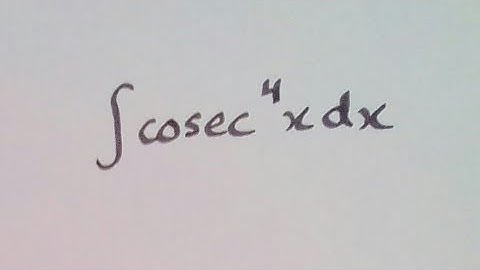 ∫cosec⁴x dx